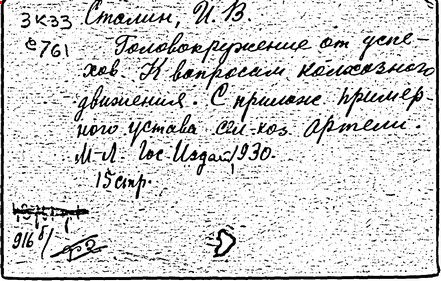 3К33 Сталин, И. В.
С761 Головокружение от успе-
хов. К вопросам колхозного
движения. С прилож. пример-
ного устава сел-хоз. артели.
М-Л. Гос. Издат, 1930.
15 стр.
916